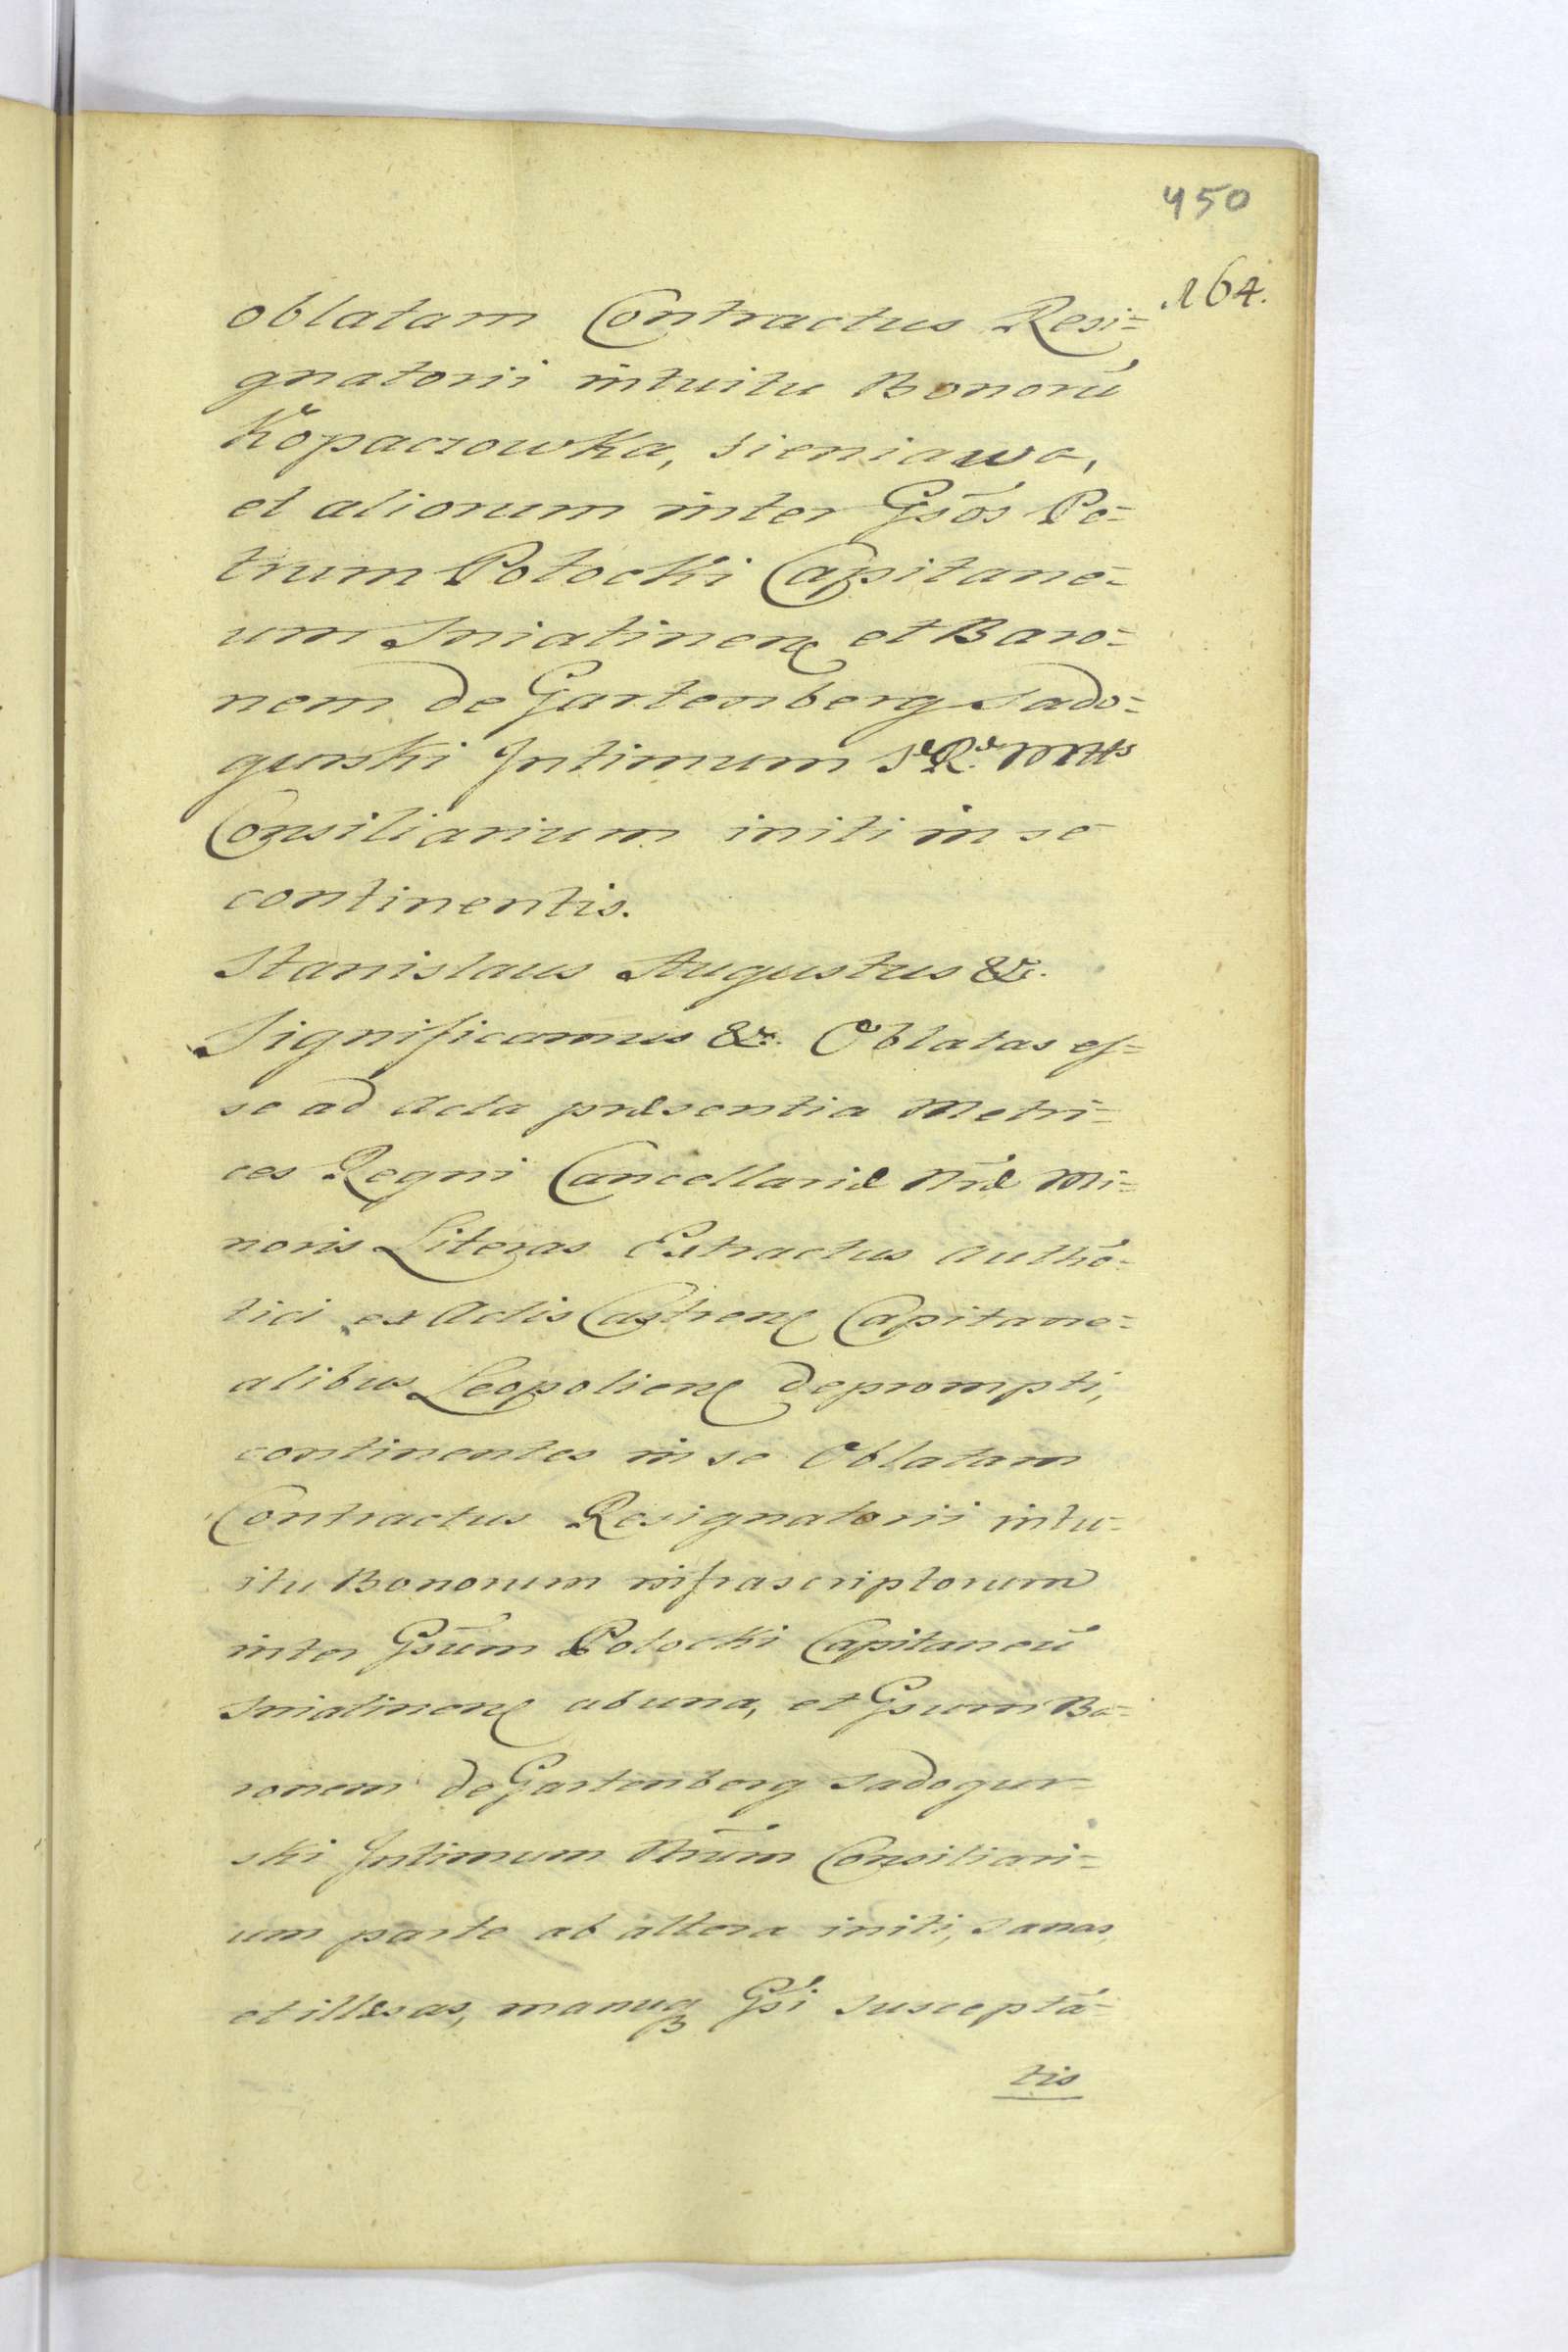 450
164.
oblatam Contractus Resi=
gnatorii intuitu Bonorū
Kopaczowka, Sieniawa,
et aliorum inter Gsōs Pe=
trum Potocki Capitane=
um Sniatinens et Baro=
nem de Gartenberg Sado=
gurski Intimum S.R. Mttis
Consiliarium initi in se
continentis.
Stanislaus Augustus &c.
Significamus &c. Oblatas es=
se ad Acta præsentia Metri=
ces Regni Cancellariæ Nræ Mi=
noris Literas Extractus Authē=
tici ex Actis Castrens Capitane=
alibus Leopoliens deprompti,
continentes in se Oblatam
Contractus Resignatorii intu=
itu Bonorum infrascriptorum
inter Gsūm Potocki Capitaneū
Sniatinens ab una, et Gsum Ba=
ronem de Gartenberg Sadogur=
ski Intimum Nrūm Consiliari=
um parte ab altera initi, sanas,
et illæsas, manuq Gsi susceptā=
tis